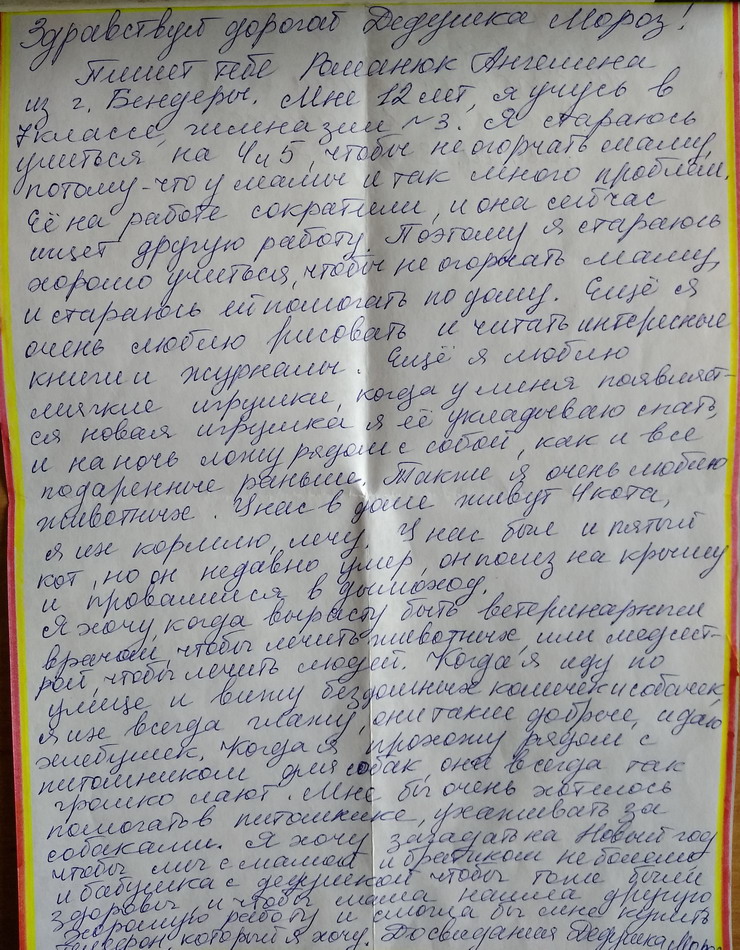 Здравствуй дорогой Дедушка Мороз!
Пишет тебе Романюк Ангелина
из г. Бендеры. Мне 12 лет, я учусь в
7 классе, гимназии №3. Я стараюсь
учиться на 4 и 5, чтобы не огорчать маму,
потому-что у мамы и так много проблем.
Её на работе сократили, и она сейчас
ищет другую работу. Поэтому я стараюсь
хорошо учиться, чтобы не огорчать маму,
и стараюсь ей помогать по дому. Ещё я
очень люблю рисовать и читать интересные
книги и журналы. Ещё я люблю
мягкие игрушки, когда у меня появляет-
ся новая игрушка я её укладываю спать,
и на ночь ложу рядом с собой, как и все
подаренные раньше. Также я очень люблю
животных. У нас в доме живут 4 кота,
я их кормлю, лечу. У нас был и пятый
кот, но он недавно умер, он полез на крышу
и провалился в дымоход.
Я хочу, когда вырасту быть ветеринарным
врачом, чтобы лечить животных, или медсест-
рой, чтобы лечить людей. Когда я иду по
улице и вижу бездомных кошечек и собачек,
я их всегда глажу, они такие добрые, и даю
хлебушек. Когда я прохожу рядом с
питомником для собак, они всегда так
громко лают. Мне бы очень хотелось
помогать в питомнике, ухаживать за
собаками. Я хочу загадать на Новый год
чтобы мы с мамой и братиком не болели
и бабушка с дедушкой чтобы тоже были
здоровы и чтобы мама нашла другую
хорошую работу и смогла бы мне купить
телефон который я хочу. Досвидания Дедушка Мороз